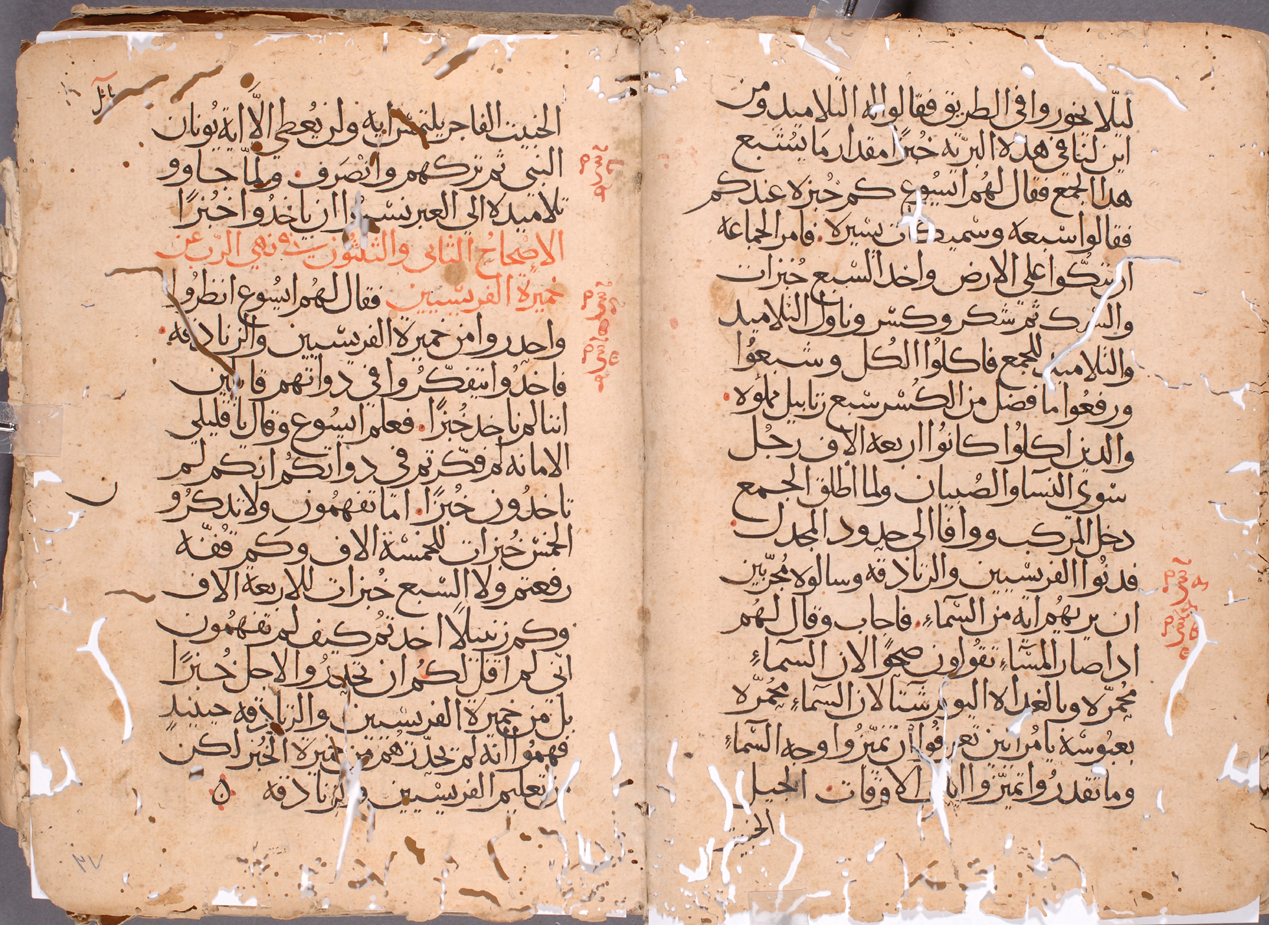 ليلا يخوروا في الطريق فقالوا له التلاميد ومن
اين لنا في هده البريه خبزا مقدار ما يشبع
هدا الجمع فقال لهم ايسوع كم خبزه عندكم
فقالوا سبعه وسميكات يسيره. فامر الجماعه
ان يتكوا علي الارض واخد السبع خبزات
والسمك ثم شكر وكسر وناول التلاميد
والتلاميد للجمع فاكلوا الكل وشبعوا
ورفعوا ما فضل من الكسر سبع زنابيل مملوه.
والدين اكلوا كانوا اربعه الاف رجل
سوي النسا والصبيان ولما اطلق الجمع
دخل المركب ووافا الي حدود المجدل.
فدنوا الفريسيين والزنادقه وسالوه مجربين
ان يريهم ايه من السماء. فاجاب وقال لهم
ادا صار المساء تقولون صحوا لان السماء
محمره وبالغداه اليوم شتا لان السماء محمره
بعبوسه يا مرايين تعرفوا ان تميزوا وجه السماء
وما تقدروا تميزوا ايات الاوقات الجيل
الخبيث
الخبيث الفاجر يلتمس ايه ولن يعطي الا ايه يونان
النبي ثم تركهم وانصرف. ولما جاوو
تلاميده الي العبر نسيوا ان ياخدوا خبزا
الاصحاح الثاني والثلثون نهي الرب عن
خميرة الفريسيين فقال لهم ايسوع انظروا
واحدروا من خميرة الفريسيين والزنادقه.
فاخدوا يتفكروا في دواتهم قايلين
اننا لم ناخد خبزا. فعلم ايسوع وقال يا قليلي
الامانه لم فكرتم في دواتكم انكم لم
تاخدون خبزا. اما تفهمون ولا تدكرو
الخمس خبزات للخمسة الاف وكم قفه
رفعتم ولا السبع خبزات للاربعة الاف
وكم زنبيلا اخدتم كيف لم تفهمون
اني لم اقل لكم ان تحدرو الاجل خبزا
بل من خميرة الفريسيين والزنادقه حينيد
فهموا انه لم يحدرهم من خميرة الخبز لكن
من تعليم الفريسيين والزنادقه
٣٧